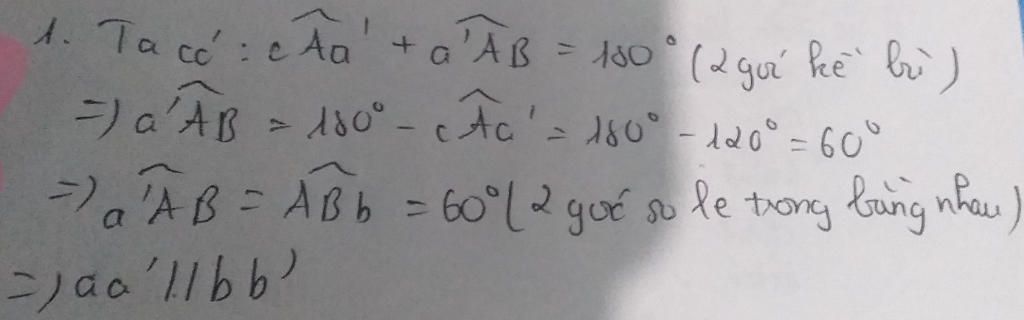 1. Ta có: cÂa' + a'ÂB = 180° (2 góc kề bù)
=> a'ÂB = 180° - cÂa' = 180° - 120° = 60°
=> a'ÂB = AB̂b = 60° (2 góc so le trong bằng nhau)
=> aa' // bb'